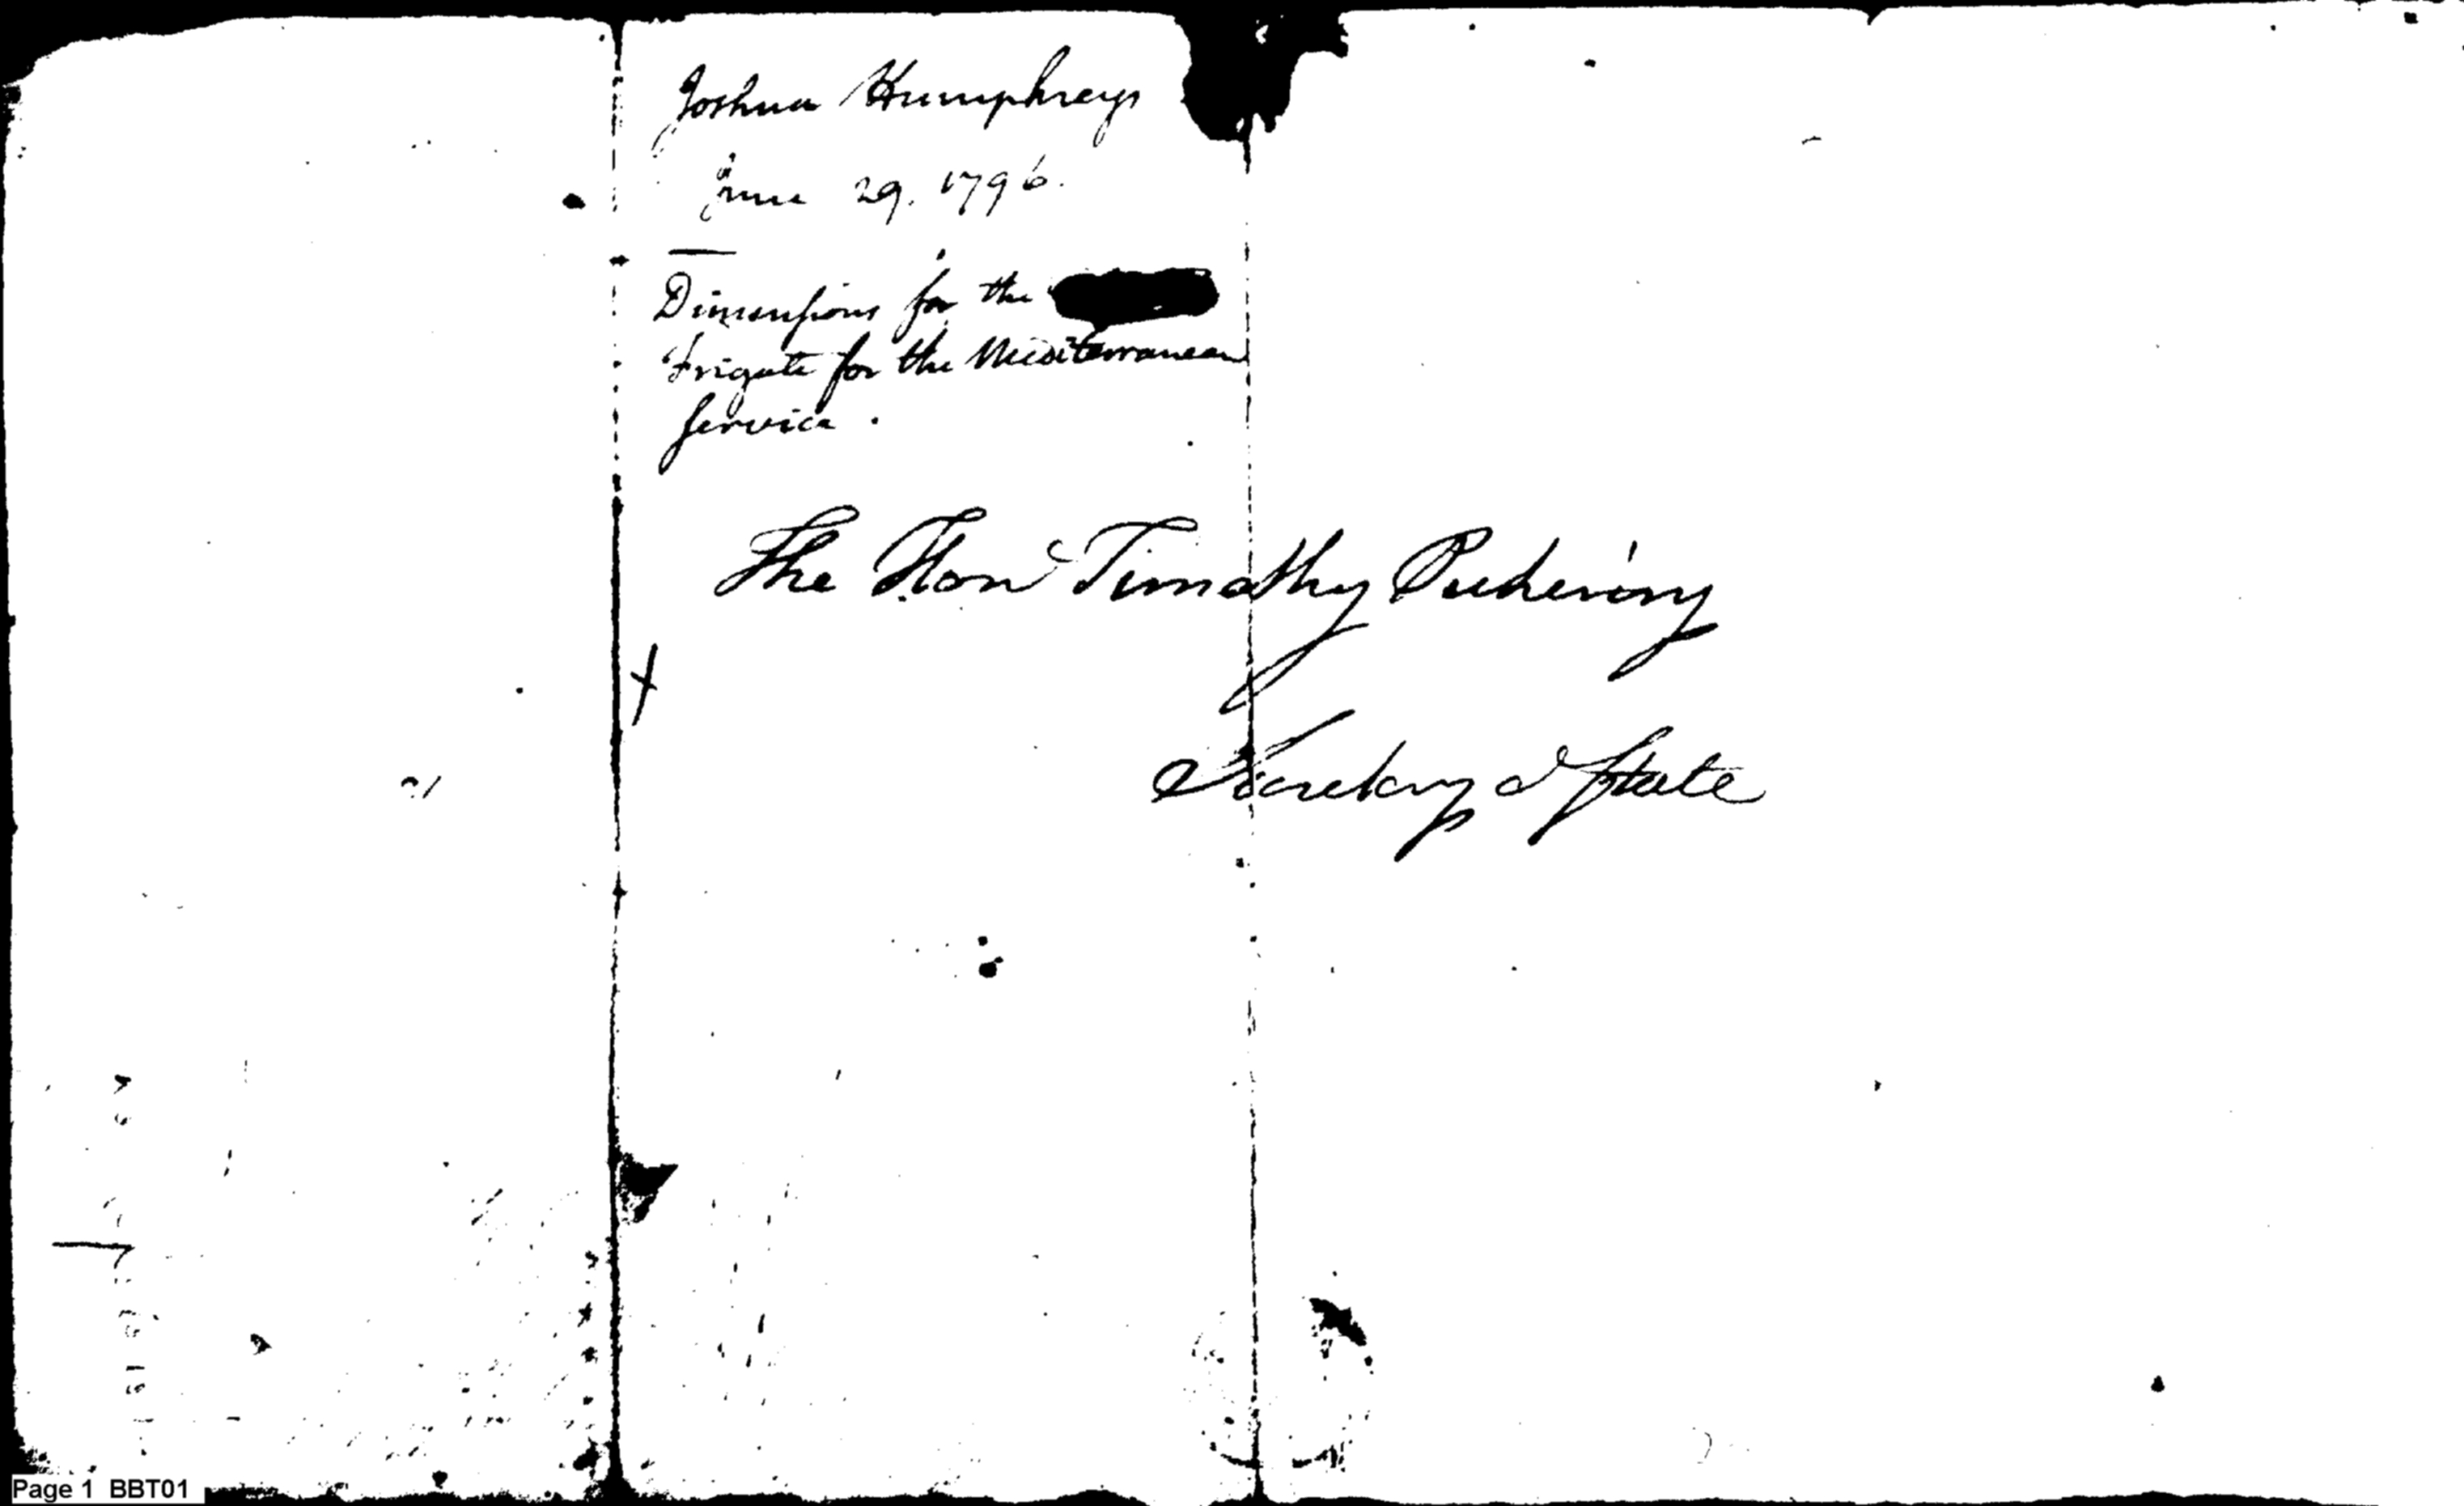 Joshua Humphreys
June 29. 1796.
Dimensions for the
frigate for the Mediterranean
Service.
The Hon Timothy Pickering
Secretary of State
Page 1 BBT01